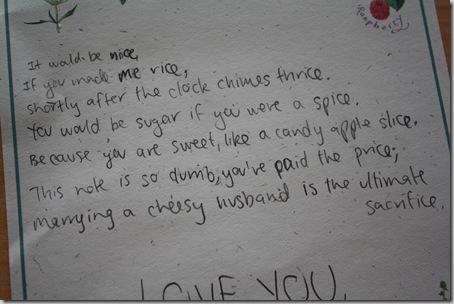 Raspberry
It would be nice,
If you made me rice,
shortly after the clock chimes thrice.
You would be sugar if you were a spice.
Because you are sweet, like a candy apple slice.
This note is so dumb, you've paid the price;
marrying a cheesy husband is the ultimate
sacrifice.
LOVE YOU.